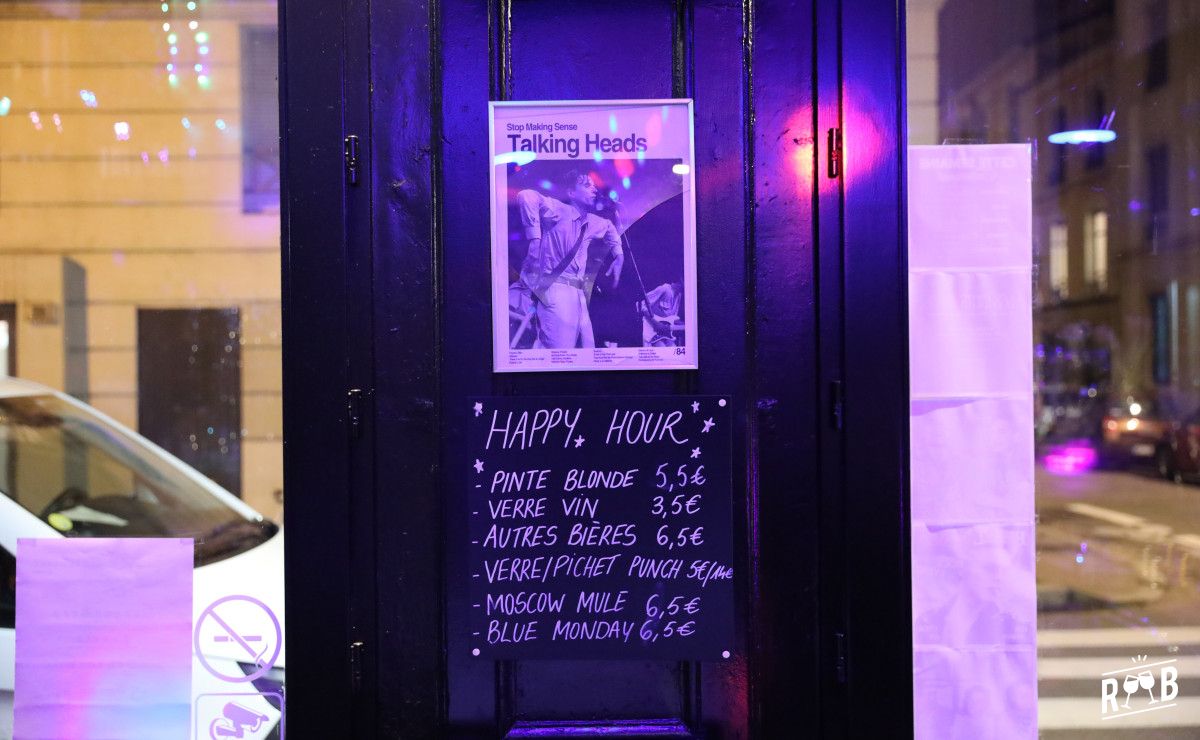 Stop Making Sense
Talking Heads
/84
HAPPY HOUR
- PINTE BLONDE 5,5€
- VERRE VIN 3,5€
- AUTRES BIÈRES 6,5€
- VERRE/PICHET PUNCH 5€/14€
- MOSCOW MULE 6,5€
- BLUE MONDAY 6,5€
CETTE SEMAINE
R B